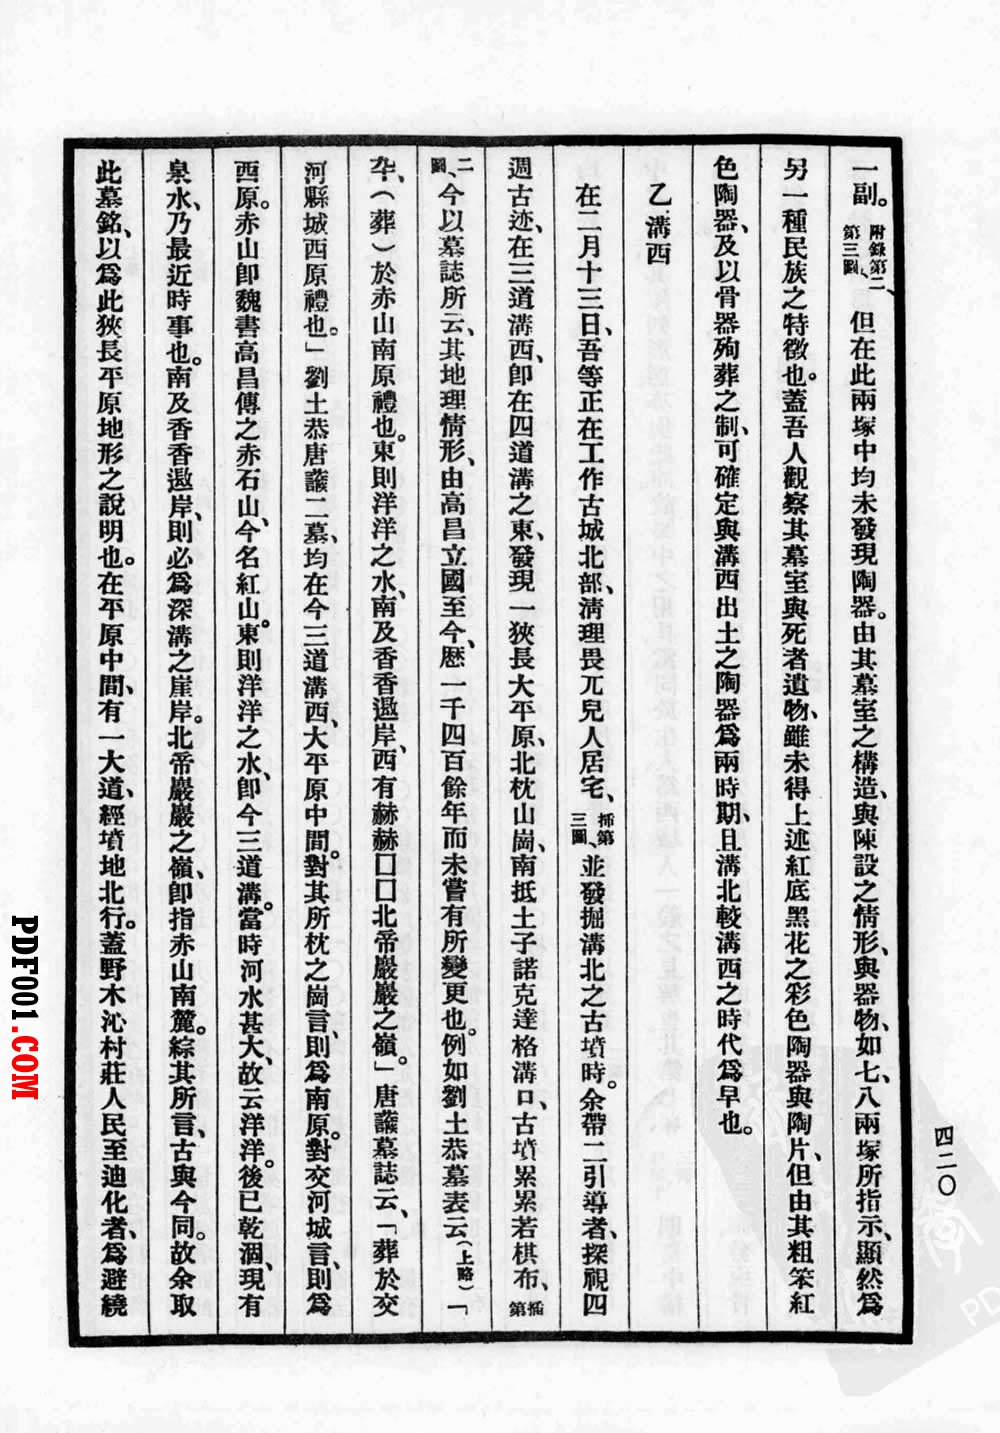 一副。附錄第二、第三圖、但在此兩塚中均未發現陶器。由其墓室之構造、與陳設之情形、與器物、如七、八兩塚所指示、顯然爲
另一種民族之特徵也。蓋吾人觀察其墓室與死者遺物、雖未得上述紅底黑花之彩色陶器與陶片、但由其粗笨紅
色陶器、及以骨器殉葬之制、可確定與溝西出土之陶器爲兩時期、且溝北較溝西之時代爲早也。
乙溝西
在二月十三日、吾等正在工作古城北部、清理畏兀兒人居宅、插第三圖、並發掘溝北之古墳時。余帶二引導者、探視四
週古迹、在三道溝西、卽在四道溝之東、發現一狹長大平原、北枕山崗、南抵土子諾克達格溝口、古墳累累若棋布、插第
二圖、今以墓誌所云、其地理情形、由高昌立國至今、歷一千四百餘年而未嘗有所變更也。例如劉士恭墓表云（上略）「
卒、（葬）於赤山南原禮也。東則洋洋之水、南及香香遐岸、西有赫赫囗囗北帝巖巖之嶺。」唐護墓誌云、「葬於交
河縣城西原禮也。」劉士恭唐護二墓、均在今三道溝西、大平原中間。對其所枕之崗言、則爲南原。對交河城言、則爲
西原。赤山卽魏書高昌傳之赤石山、今名紅山。東則洋洋之水、卽今三道溝。當時河水甚大、故云洋洋。後已乾涸、現有
泉水、乃最近時事也。南及香香遐岸、則必爲深溝之崖岸。北帝巖巖之嶺、卽指赤山南麓。綜其所言、古與今同。故余取
此墓銘、以爲此狹長平原地形之說明也。在平原中間、有一大道、經墳地北行。蓋野木沁村莊人民至迪化者、爲避繞
四二〇
PDF001.COM